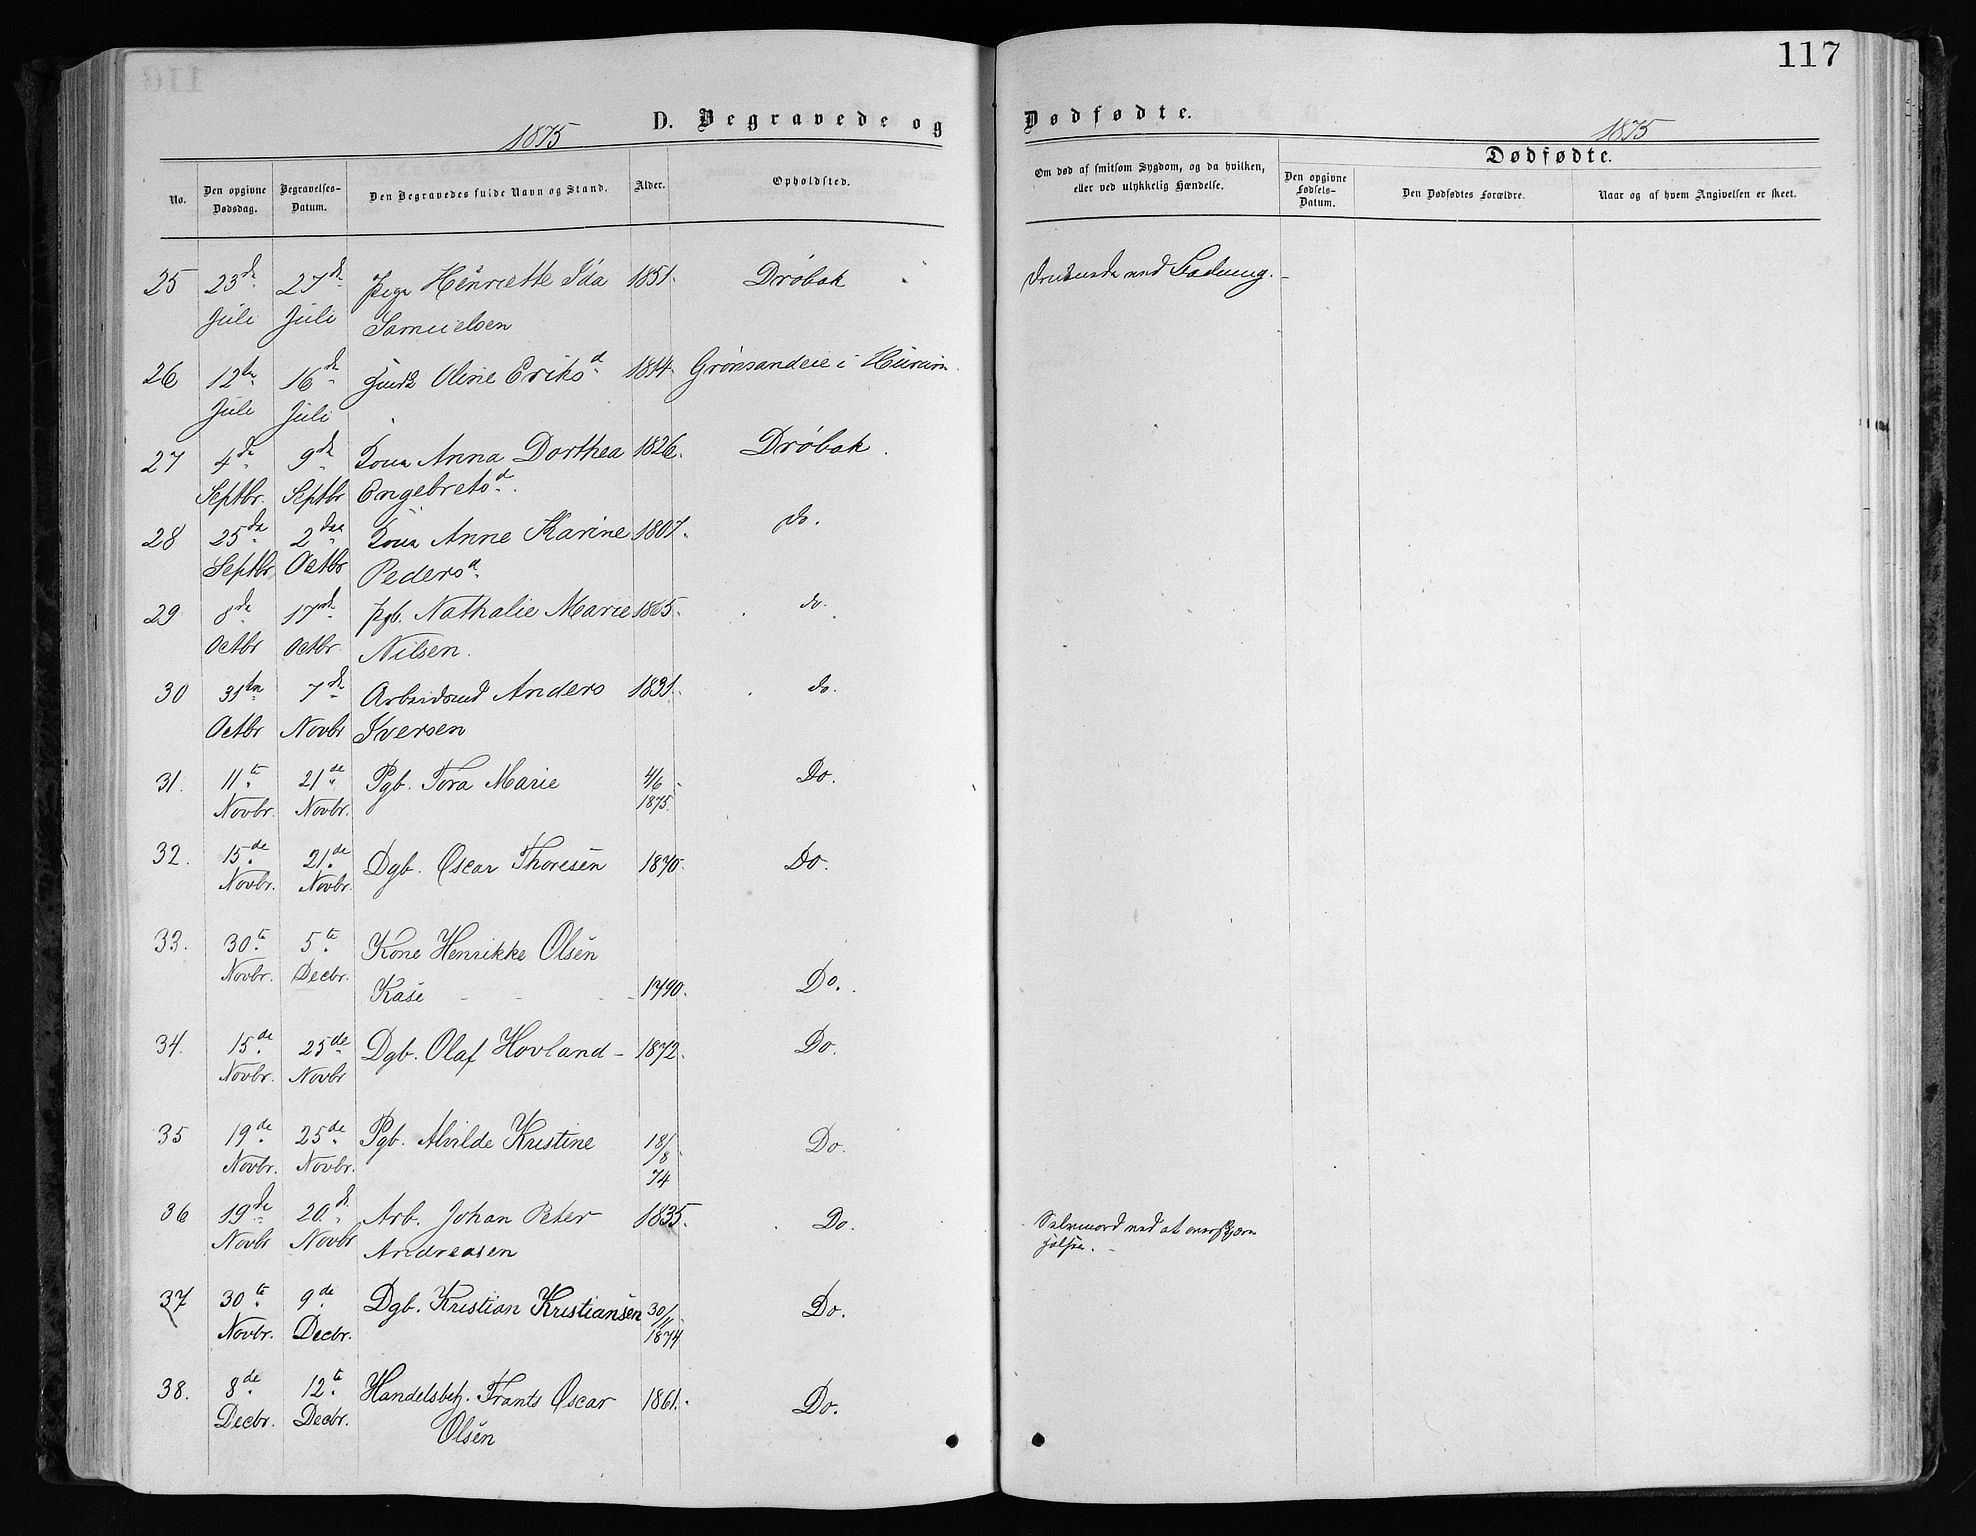 117
1875 D. Begravede og Dødfødte. 1875
No.
Den opgivne Dødsdag.
Begravelses-Datum.
Den Begravedes fulde Navn og Stand.
Alder.
Opholdsted.
Om død af smitsom Sygdom, og da hvilken, eller ved ulykkelig Hændelse.
Dødfødte.
Den opgivne Fødsels-Datum.
Den Dødfødtes Forældre.
Naar og af hvem Angivelsen er skeet.
25 23de 27de Pige Henriette Ida 1851. Drøbak
Juli Juli Samuelsen
26 12te 16de Oline Eriksd 1814. Grønsandeie i Hurum.
Juli Juli
27 4de 9de Kone Anna Dorthea 1826. Drøbak.
Septbr. Septbr Engebretsd.
28 25de 2den Kone Anne Karine 1807. do.
Septbr Octbr Pedersd.
29 8de 17de Pgb. Nathalie Marie 1865. do.
Octbr Octbr. Nilsen.
30 31te 7de Arbeidsmd Anders 1831. do.
Octbr Novbr Iversen
31. 11te 21de Pgb. Tora Marie 4/6 Do.
Novbr. Novbr. 1875.
32. 15de 21de Dgb. Oscar Thoresen 1870. Do.
Novbr. Novbr.
33. 30te 5te Kone Henrikke Olsen
Novbr. Decbr. Kase - - - 1790. Do.
34. 15de 25de Dgb. Olaf Hovland - 1872. Do.
Novbr. Novbr
35 19de 25de Pgb. Alvilde Kristine 18/8 Do.
Novbr. Novbr. 74
36 19de 20de Arb. Johan Peter 1835. Do. Selvmord ved at overskjære
Novbr Novbr Andreasen Halsen.
37 30te 9de Dgb. Kristian Kristiansen 30/11 Do.
Novbr. Decbr. 1874
38. 8de 12te Handelsbetj. Frants Oscar 1861. Do.
Decbr. Decbr. Olsen